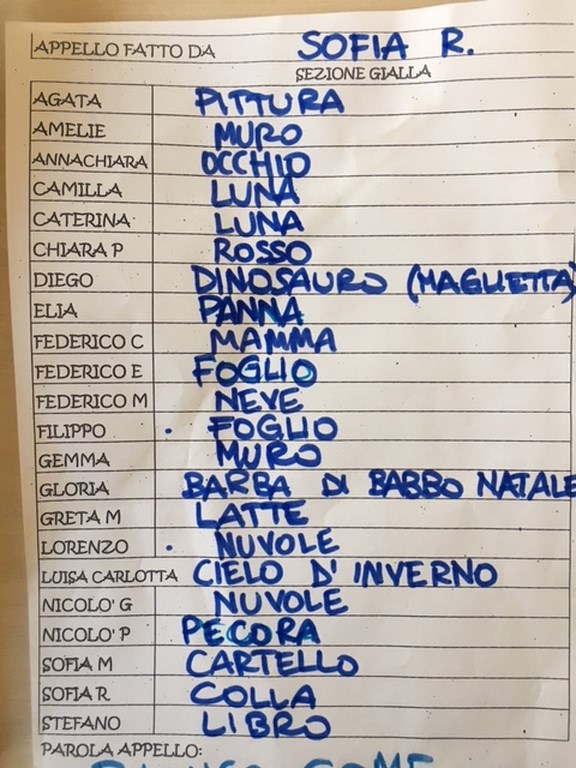 APPELLO FATTO DA SOFIA R.
SEZIONE GIALLA
AGATA PITTURA
AMELIE MURO
ANNACHIARA OCCHIO
CAMILLA LUNA
CATERINA LUNA
CHIARA P ROSSO
DIEGO DINOSAURO (MAGLIETTA)
ELIA PANNA
FEDERICO C MAMMA
FEDERICO E FOGLIO
FEDERICO M NEVE
FILIPPO FOGLIO
GEMMA MURO
GLORIA BARBA DI BABBO NATALE
GRETA M LATTE
LORENZO NUVOLE
LUISA CARLOTTA CIELO D'INVERNO
NICOLO' G NUVOLE
NICOLO' P PECORA
SOFIA M CARTELLO
SOFIA R COLLA
STEFANO LIBRO
PAROLA APPELLO:
BIANCO COME